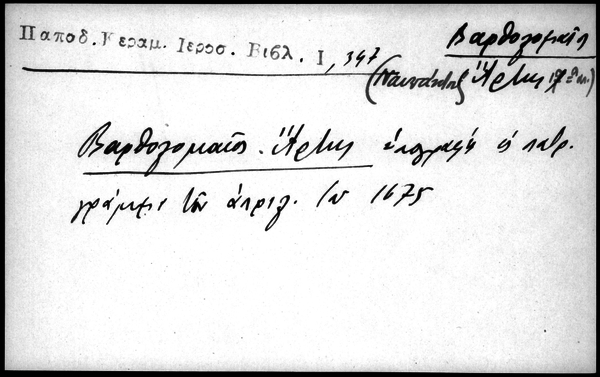 Παπαδ. Κεραμ. Ιεροσ. Βιβλ. Ι, 347
Βαρθολομαῖος
(Ναυπάκτου Ἄρτης
Βαρθολομαῖος Ἄρτης ὑπογραφή
γράμμα τοῦ ἀπριλ. τοῦ 1675